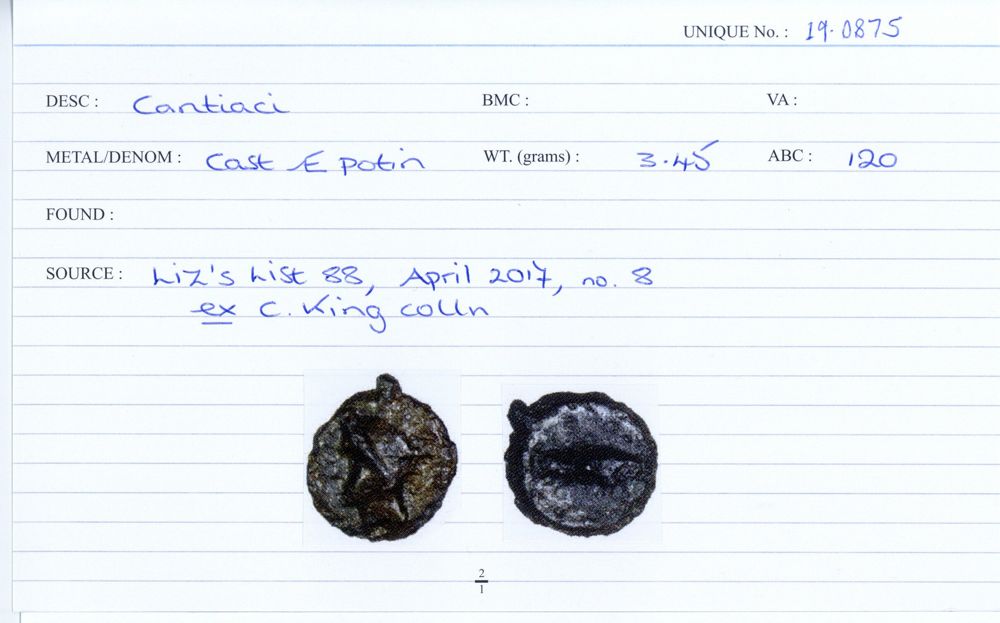 UNIQUE No. : 19.0875
DESC : Cantiaci BMC : VA :
METAL/DENOM : Cast Æ potin WT. (grams) : 3.45 ABC : 120
FOUND :
SOURCE : Liz's List 88, April 2017, no. 8
ex C. King colln
2
1